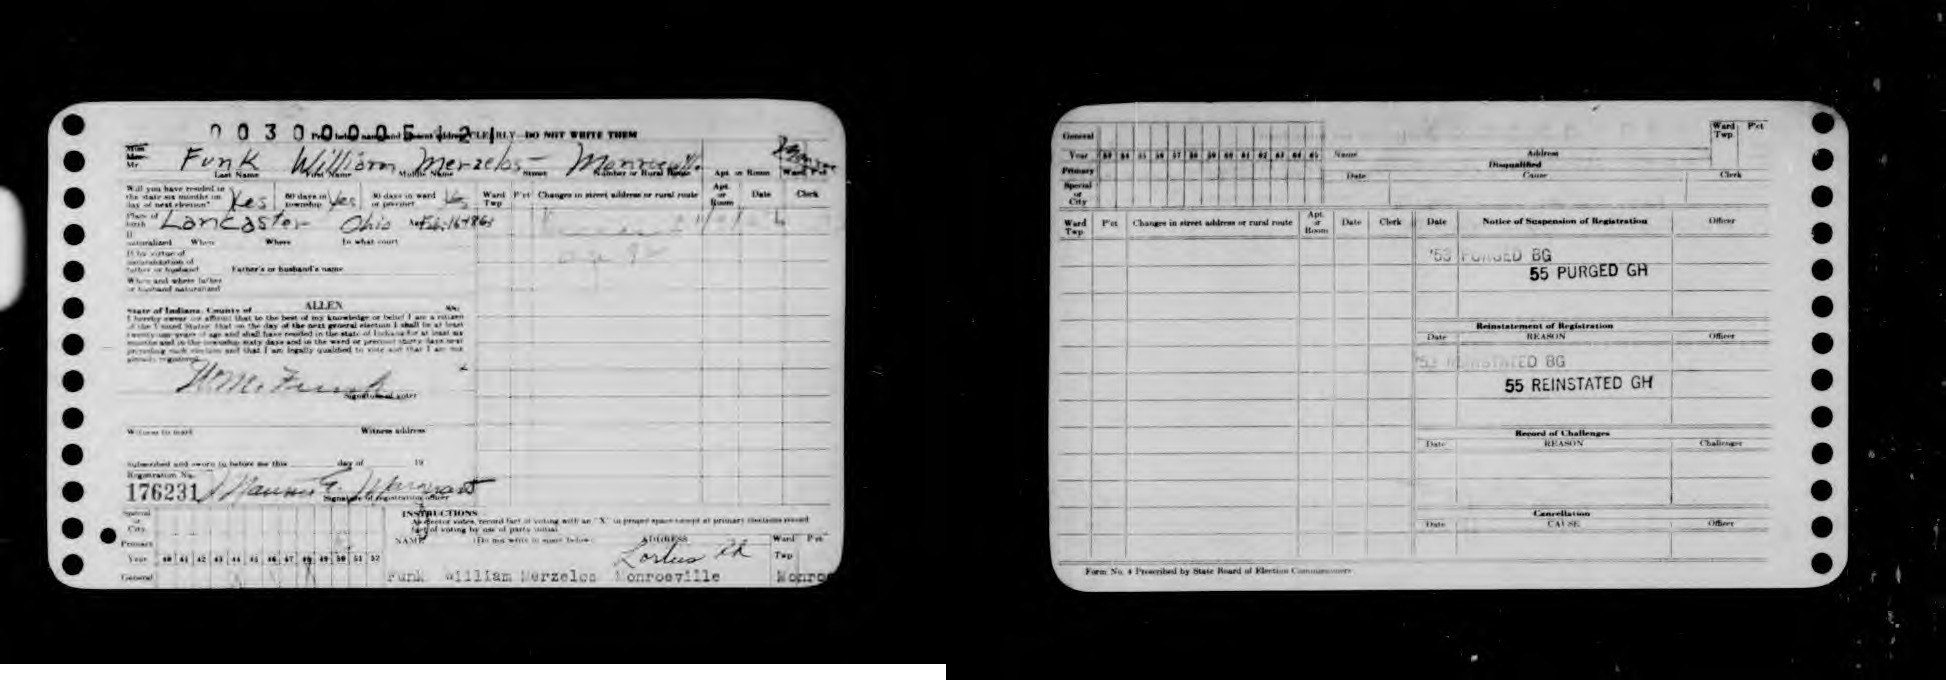 0 0 3 0 0 0 0 5 1 2 1
CLEARLY DO NOT WRITE THEM
Mr. Funk William Merzelos Monroeville
Last Name First Name Middle Name Street Number or Rural Route Apt. or Room Ward P'ct
Will you have resided in the state six months on day of next election? Yes 60 days in township Yes 30 days in ward or precinct Yes
Ward Twp P'ct Changes in street address or rural route Apt. or Room Date Clerk
Place of birth Lancaster Ohio
If naturalized When Where In what court
If by virtue of naturalization of father or husband Father's or husband's name
When and where father or husband naturalized
State of Indiana, County of ALLEN SS:
I hereby swear or affirm that to the best of my knowledge or belief I am a citizen
of the United States; that on the day of the next general election I shall be at least
twenty-one years of age and shall have resided in the state of Indiana for at least six
months and in the township sixty days and in the ward or precinct thirty days next
preceding such election and that I am legally qualified to vote and that I am not
already registered.
Wm. Funk
Signature of voter
Witness to mark Witness address
Subscribed and sworn to before me this day of 19
Registration No.
176231
Signature of registration officer
INSTRUCTIONS
As elector votes, record fact of voting with an "X" in proper space except at primary elections record
fact of voting by use of party initial
NAME (Do not write in space below) ADDRESS Ward P'ct
Twp
Special or City
Primary
Year 40 41 42 43 44 45 46 47 48 49 50 51 52
General
Funk William Merzelos Monroeville Monroe
General
Year 53 54 55 56 57 58 59 60 61 62 63 64 65
Primary
Special or City
Name Address Ward Twp P'ct
Disqualified
Date Cause Clerk
Ward Twp P'ct Changes in street address or rural route Apt. or Room Date Clerk
Date Notice of Suspension of Registration Officer
'53 PURGED BG
55 PURGED GH
Reinstatement of Registration
Date REASON Officer
'53 REINSTATED BG
55 REINSTATED GH
Record of Challenges
Date REASON Challenger
Cancellation
Date CAUSE Officer
Form No. 4 Prescribed by State Board of Election Commissioners